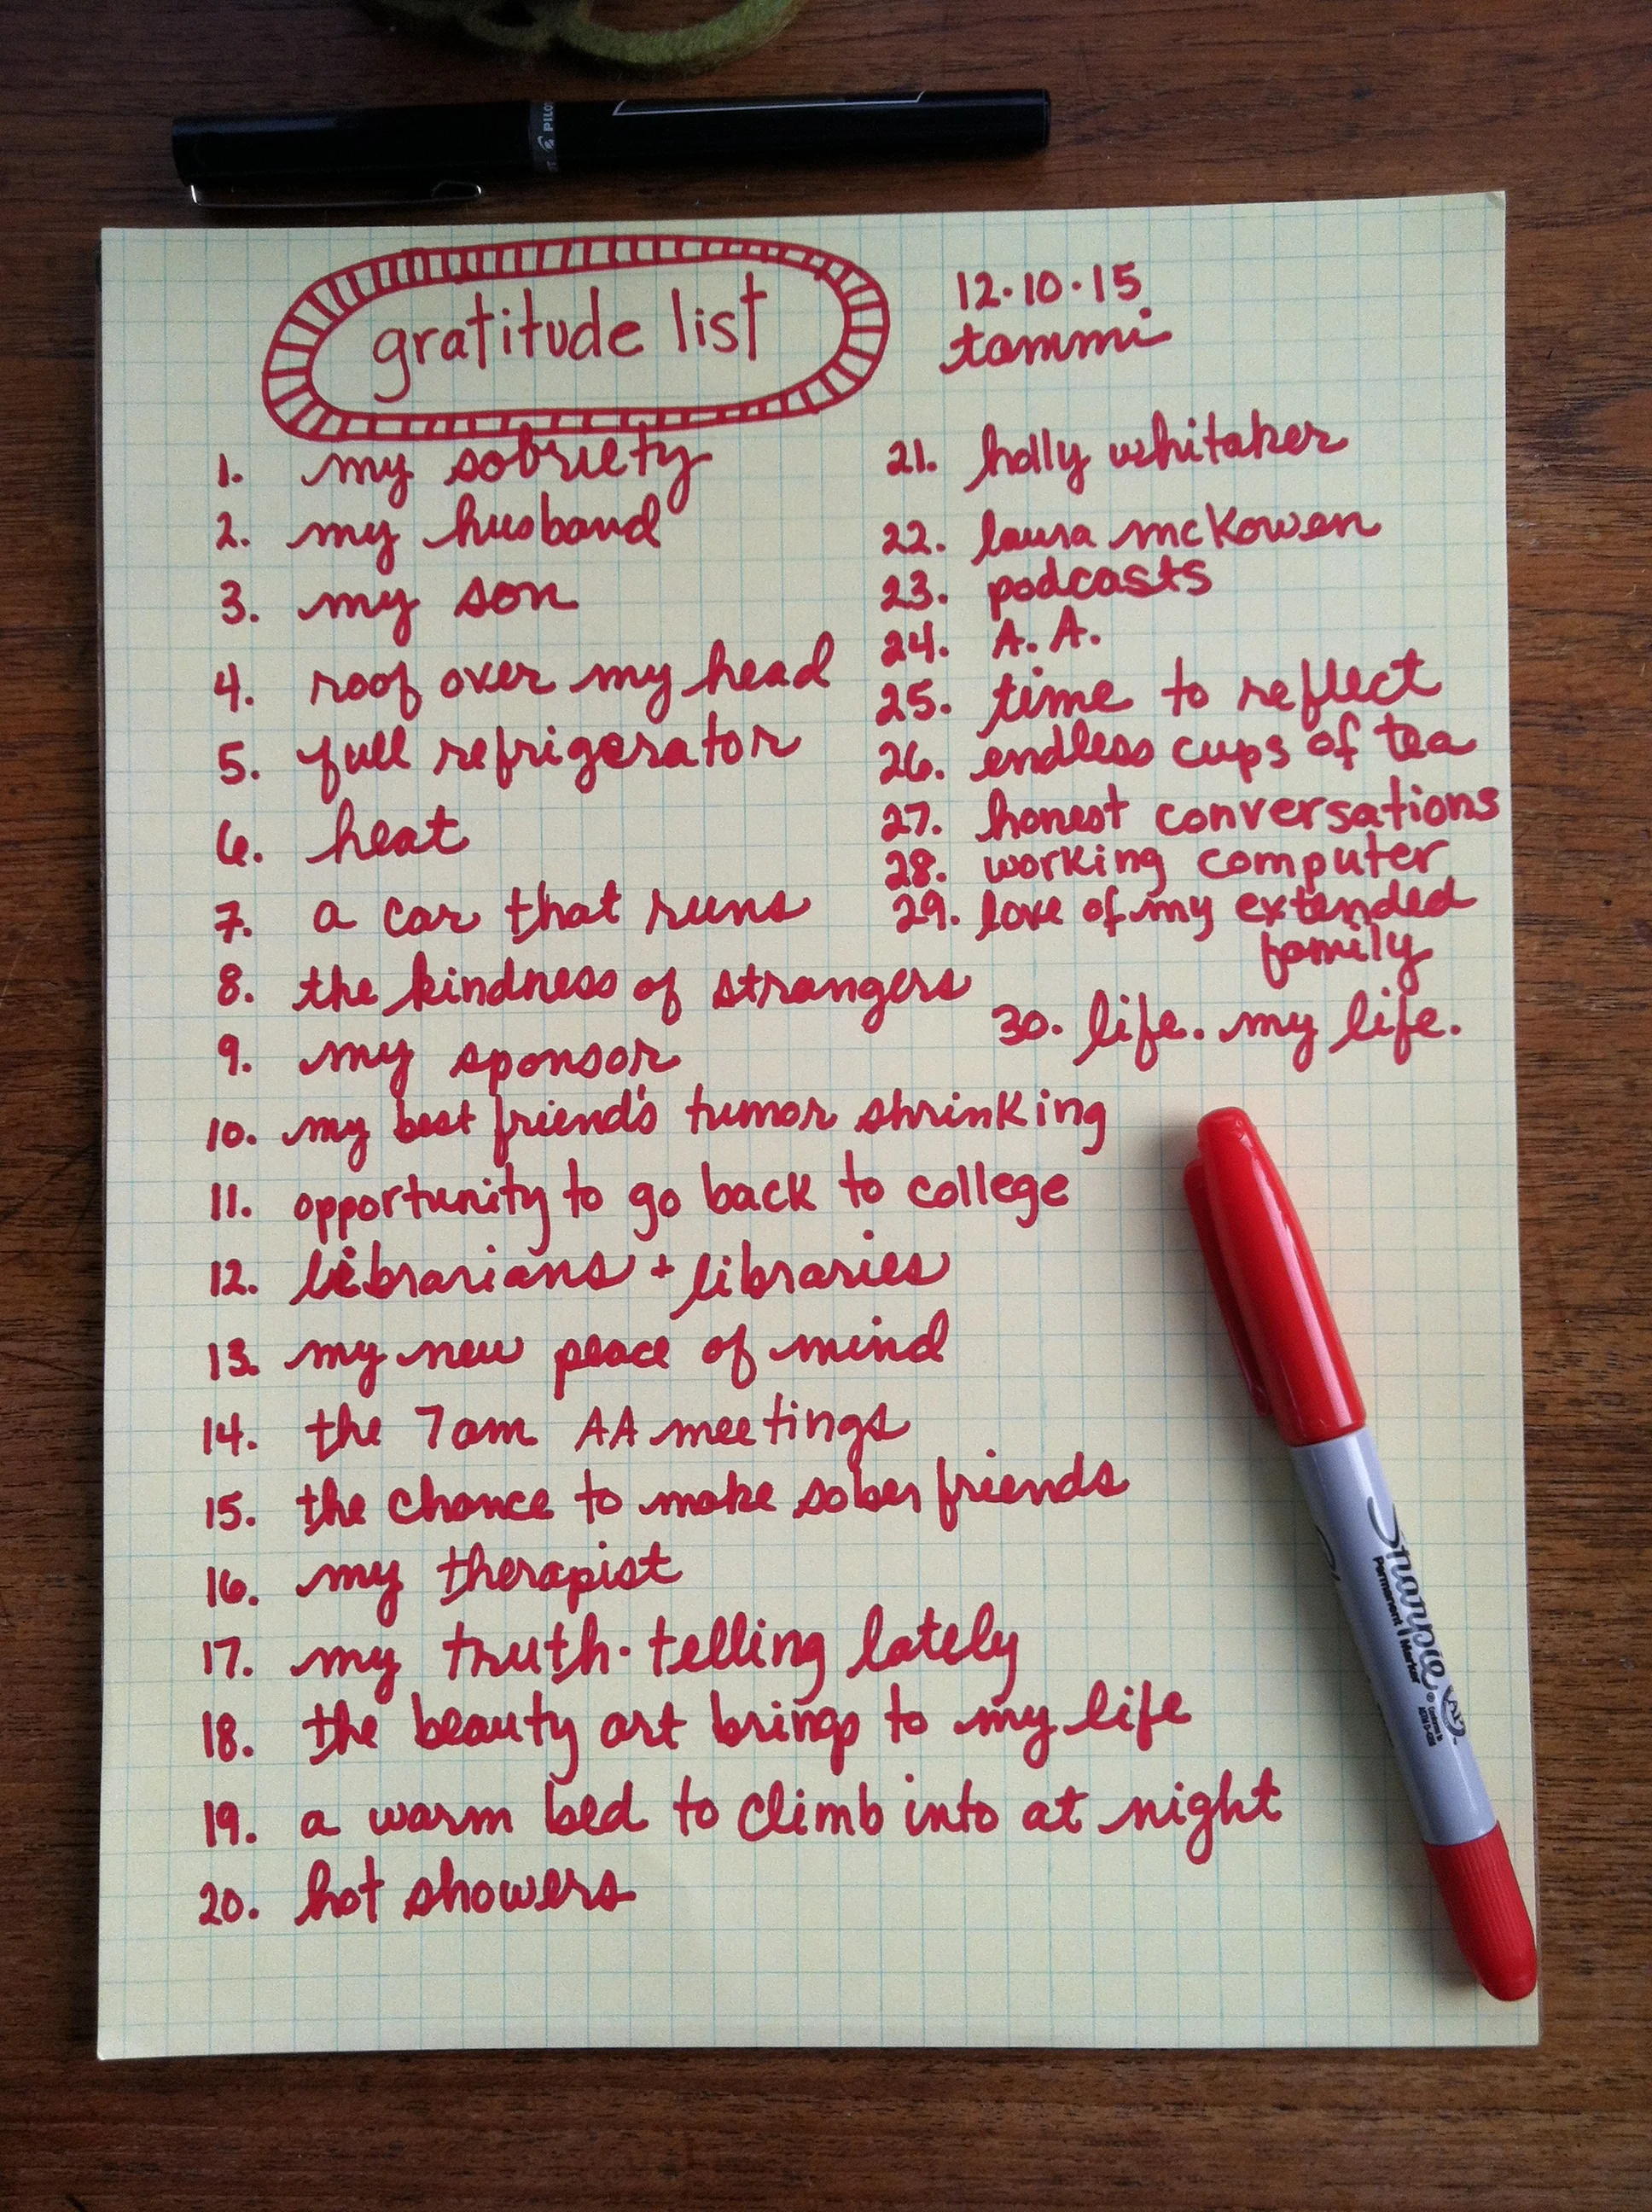 PILOT
gratitude list
12.10.15
tammi
1. my sobriety
2. my husband
3. my son
4. roof over my head
5. full refrigerator
6. heat
7. a car that runs
8. the kindness of strangers
9. my sponsor
10. my best friend's tumor shrinking
11. opportunity to go back to college
12. librarians + libraries
13. my new peace of mind
14. the 7am AA meetings
15. the chance to make sober friends
16. my therapist
17. my truth-telling lately
18. the beauty art brings to my life
19. a warm bed to climb into at night
20. hot showers
21. holly whitaker
22. laura mcKowen
23. podcasts
24. A.A.
25. time to reflect
26. endless cups of tea
27. honest conversations
28. working computer
29. love of my extended
family
30. life. my life.
Sharpie
Permanent Marker